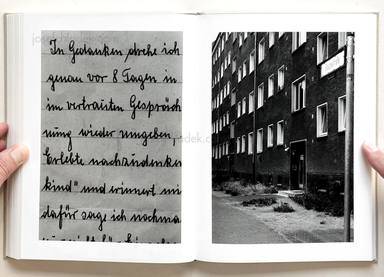 In Gedanken drehe ich
genau vor 8 Tagen in
im vertrauten Gespräch
ning wieder umgeben,
Erlebte nachzudenken
kind" und erinnert mi
dafür sage ich nochma